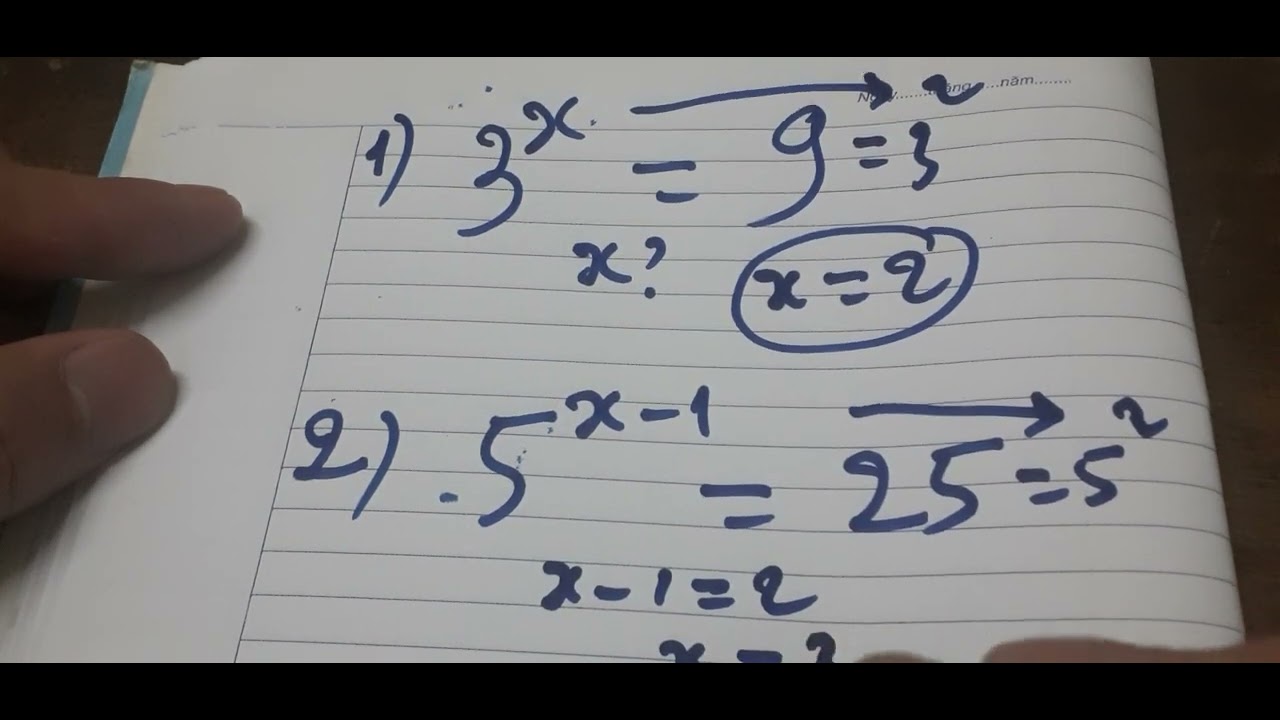 Ngày........tháng.....năm........
1) 3ˣ = 9 = 3²
x? x = 2
2). 5ˣ⁻¹ = 25 = 5²
x - 1 = 2
x =